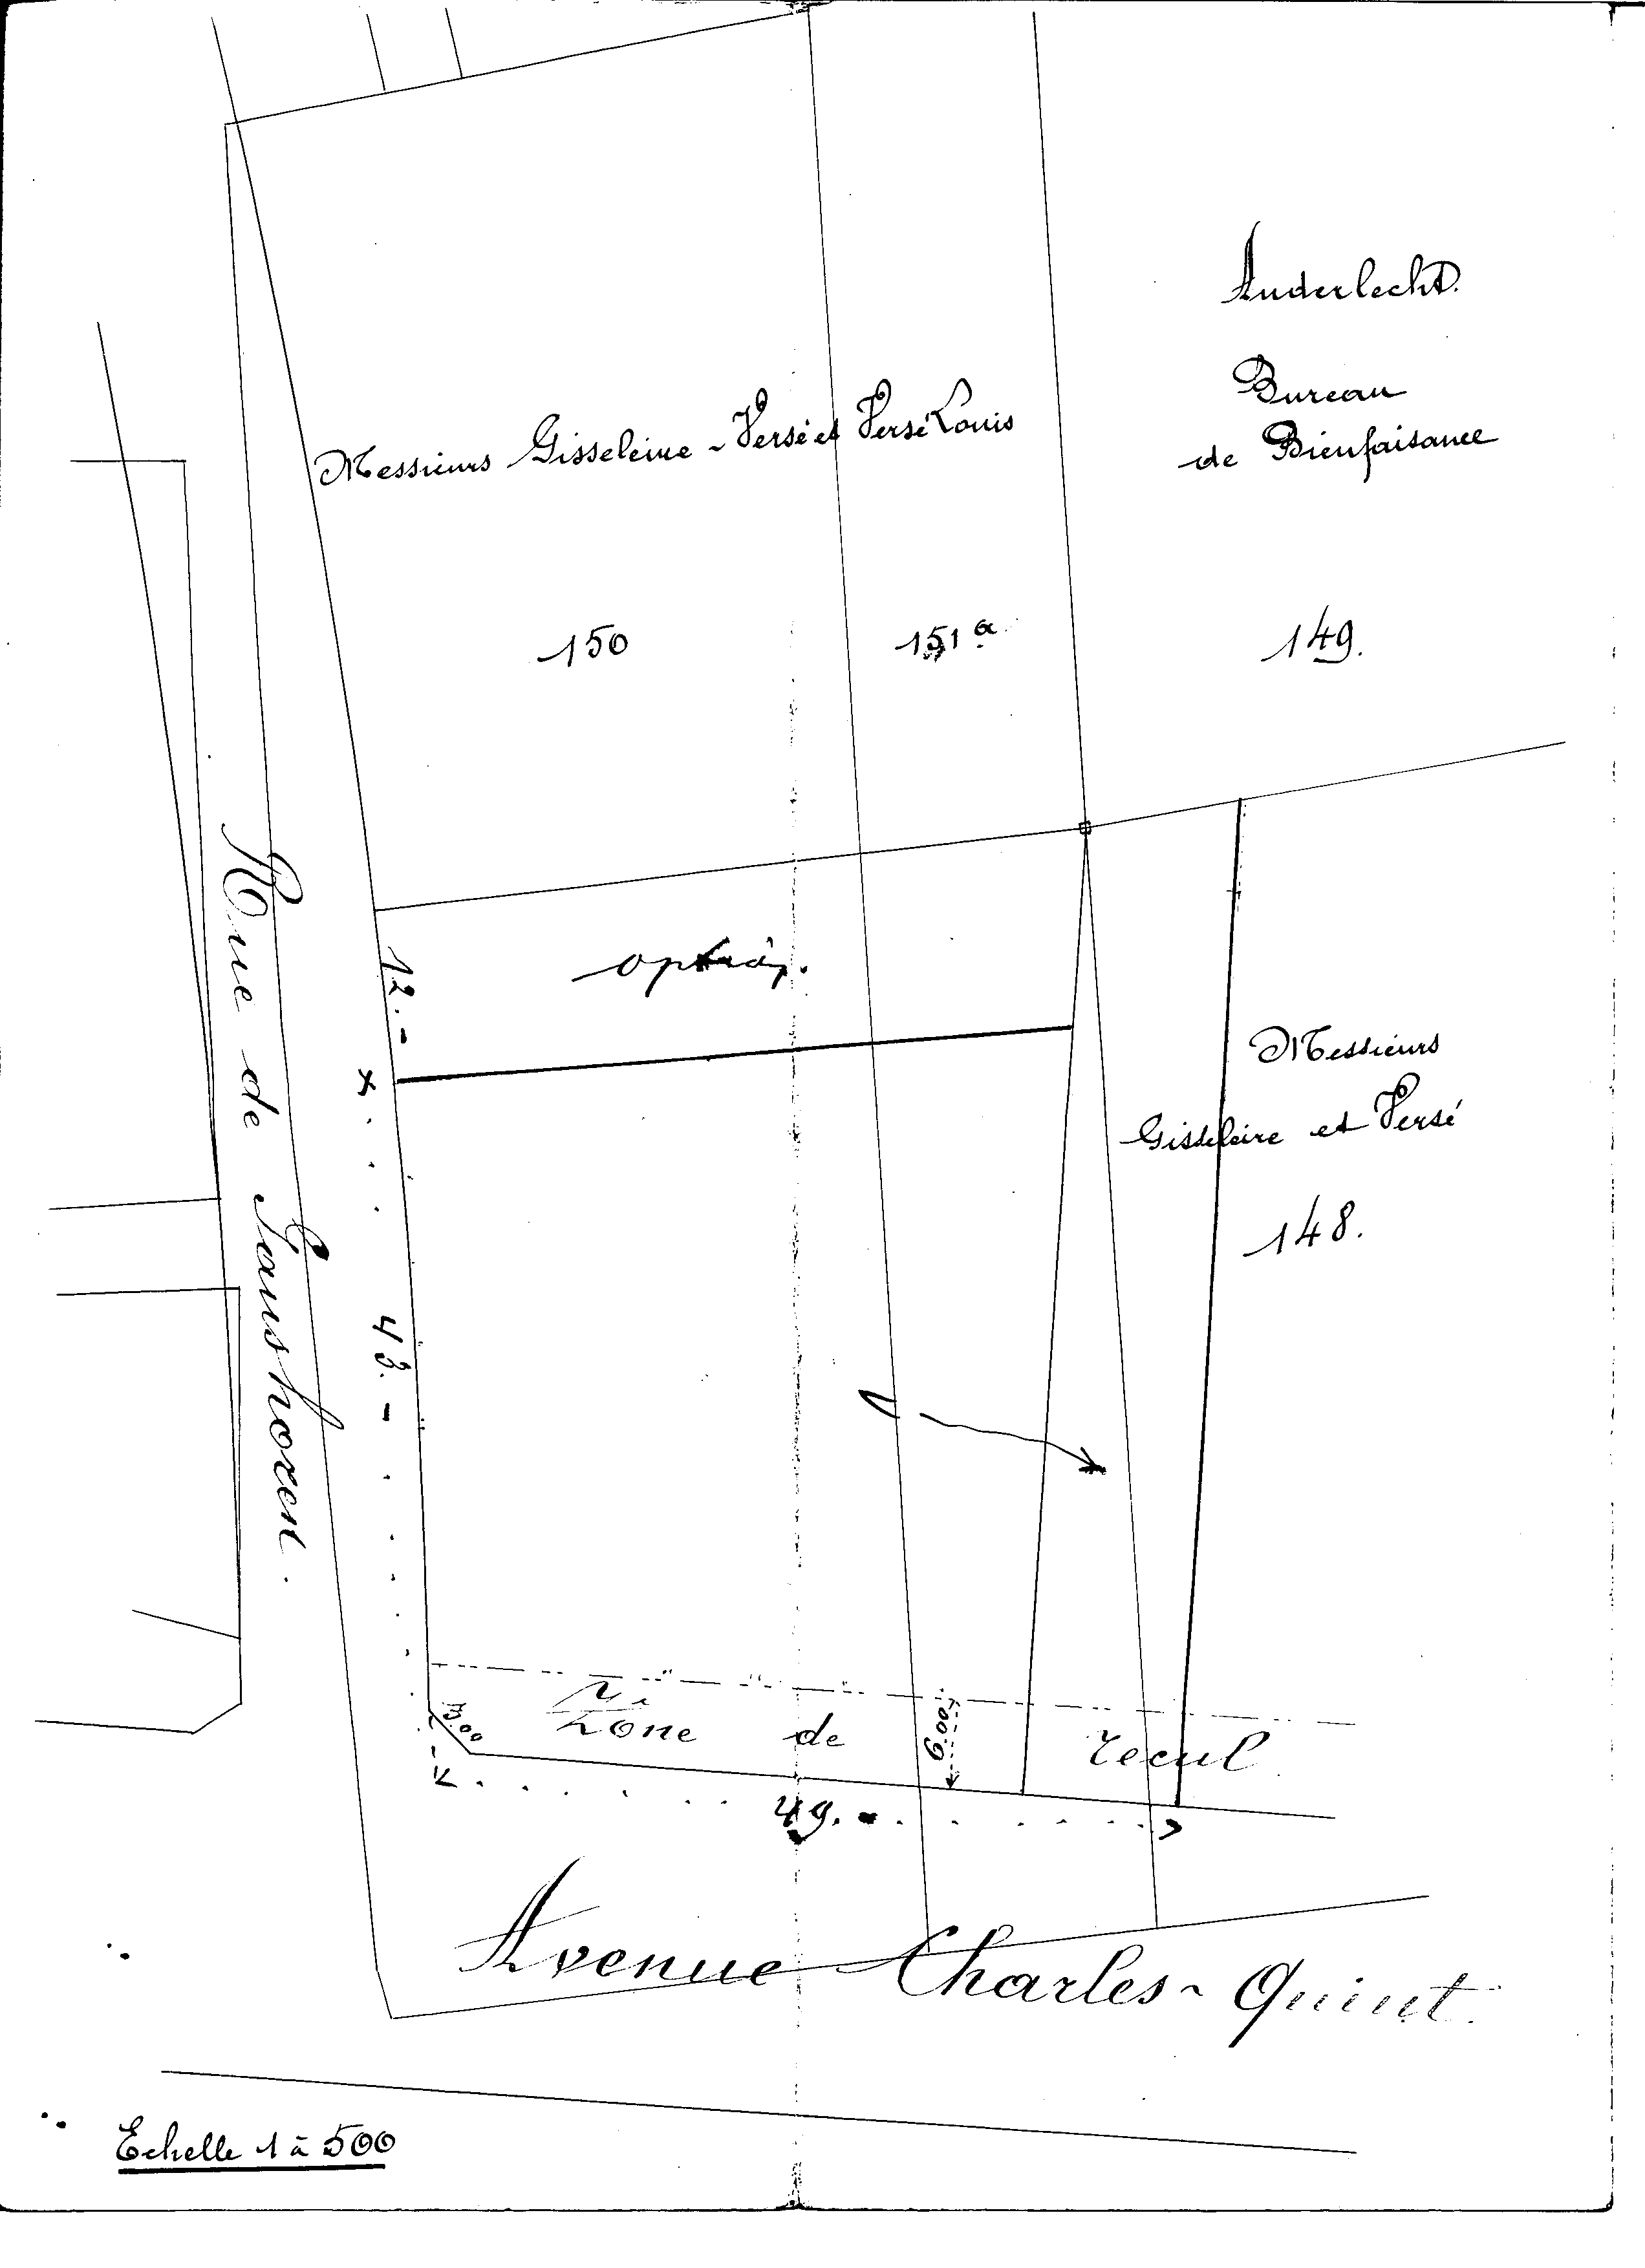 Anderlecht.
Bureau
de Bienfaisance
Messieurs Gisseleire - Versé et Versé Louis
150
151 a
149.
option.
12.-
Rue de Ganshoren.
Messieurs
Gisseleire et Versé
148.
43.-
Zone de recul
3.00
6.00
49.-
Avenue Charles-Quint.
Echelle 1 à 500